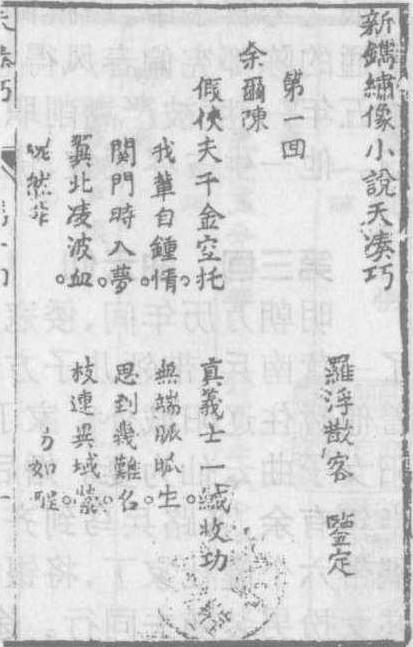 新鐫繡像小說天湊巧
羅浮散客　鑒定
第一回
余爾陳
假俠夫千金空托　真義士一緘收功
我輩自鍾情。無端脈脈生。
閨門時入夢。思到幾難名。
冀北凌波血。枝連異域縈。
然　方如醒